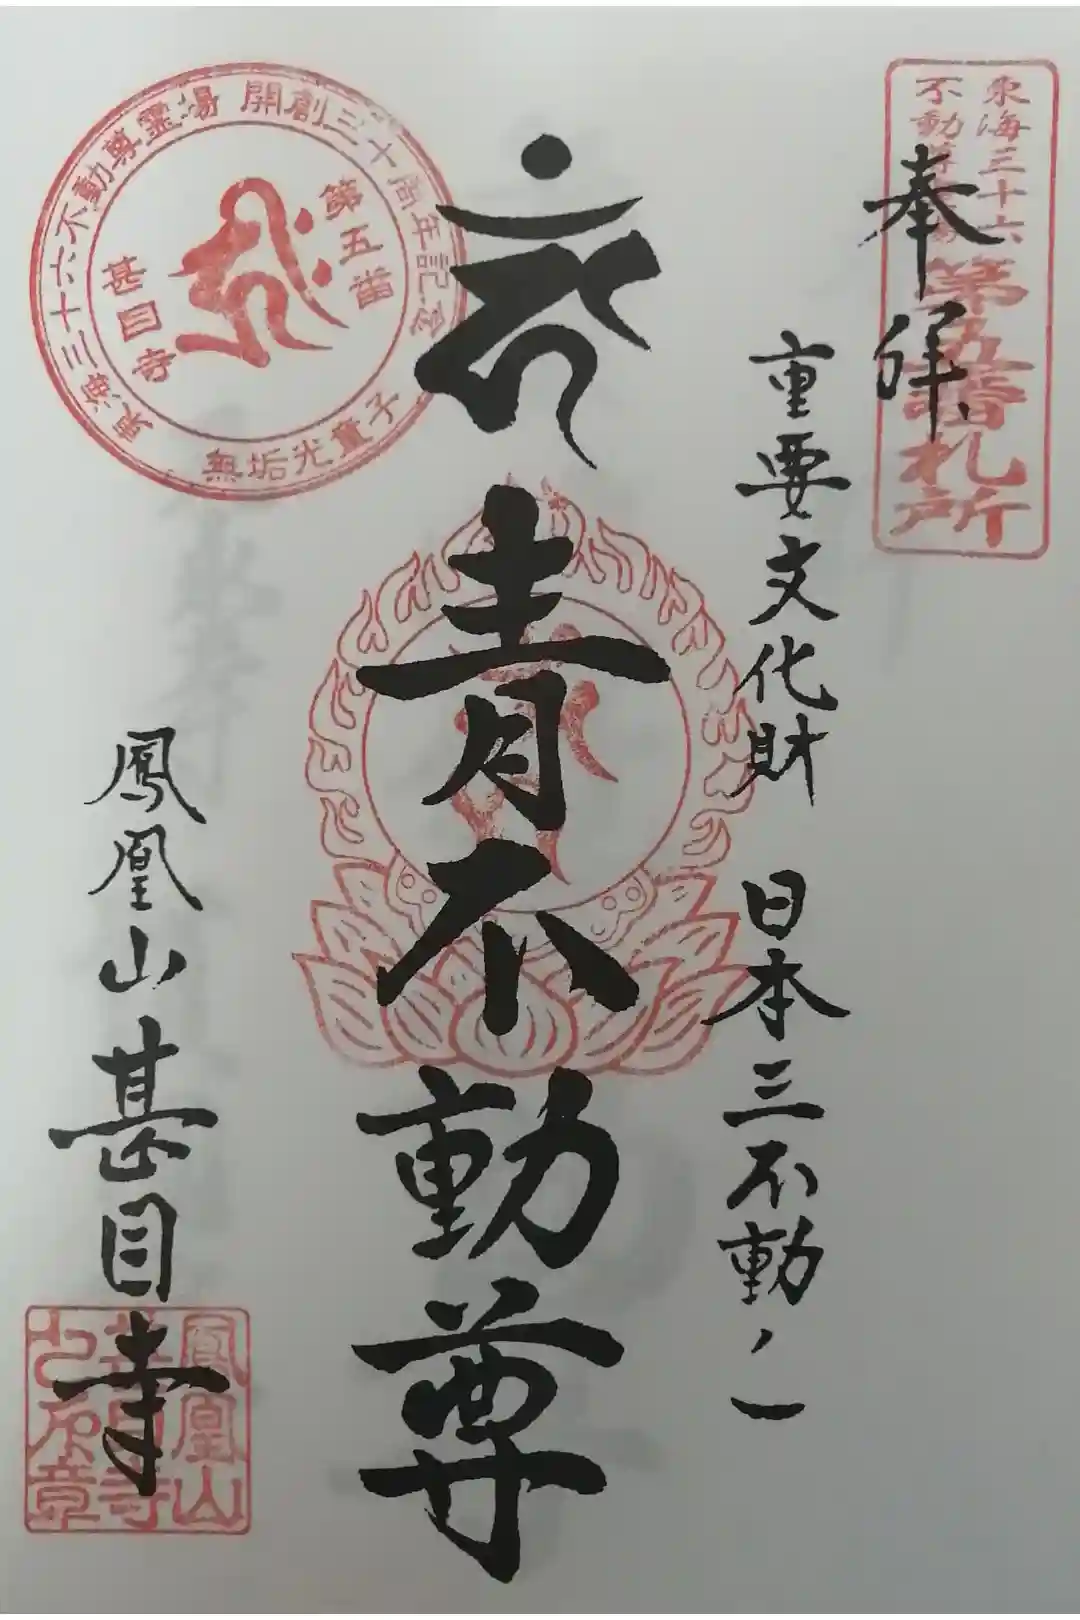 奉拝
東海三十六
不動尊霊場
第五番札所
重要文化財 日本三不動ノ一
青不動尊
鳳凰山甚目寺
東海三十六不動尊霊場 開創三十周年記念
第五番
甚目寺
無垢光童子
鳳凰山
甚目寺
之印章